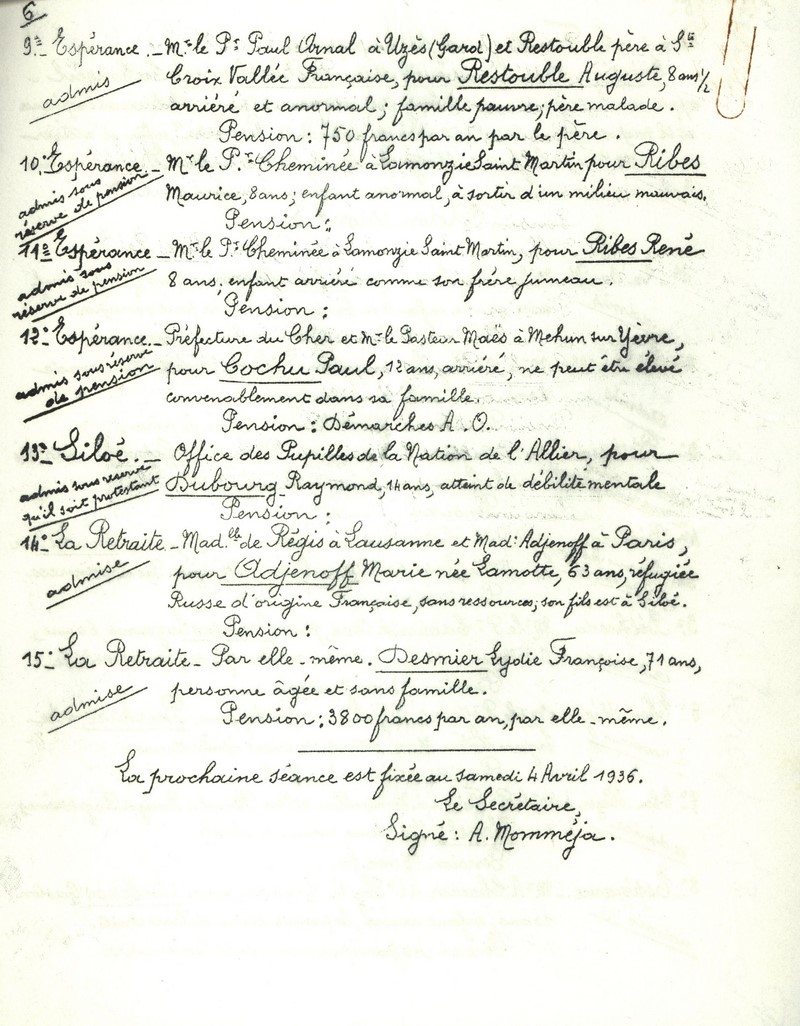 6
9º Espérance. _ Mr le Pr Paul Arnal à Uzès (Gard) et Restouble père à Ste
admis
Croix Vallée Française, pour Restouble Auguste, 8 ans 1/2
arriéré et anormal ; famille pauvre ; père malade.
Pension : 750 francs par an par le père.
10º Espérance _ Mr le Pr Cheminée à Lamonzie Saint Martin pour Ribes
admis sous
réserve de pension
Maurice, 8 ans ; enfant anormal, à sortir d'un milieu mauvais.
Pension :
11º Espérance _ Mr le Pr Cheminée à Lamonzie Saint Martin, pour Ribes René
admis sous
réserve de pension
8 ans ; enfant arriéré comme son frère jumeau.
Pension :
12º Espérance. _ Préfecture du Cher et Mr le Pasteur Maës à Mehun sur Yèvre,
admis sous réserve
de pension
pour Cochu Paul, 12 ans, arriéré, ne peut être élevé
convenablement dans sa famille.
Pension : Démarches A. O.
13º Siloé. _ Office des Pupilles de la Nation de l'Allier, pour
admis sous réserve
qu'il soit protestant
Dubourg Raymond, 14 ans, atteint de débilité mentale
Pension :
14º La Retraite _ Mad.lle de Régis à Lausanne et Mad. Adjenoff à Paris,
admise
pour Adjenoff Marie née Lamotte, 63 ans, réfugiée
Russe d'origine Française, sans ressources ; son fils est à Siloé.
Pension :
15º La Retraite _ Par elle-même. Desmier Lydie Françoise, 71 ans,
admise
personne âgée et sans famille.
Pension : 3800 francs par an, par elle-même.
La prochaine séance est fixée au samedi 4 Avril 1936.
Le Secrétaire,
Signé : A. Momméja.